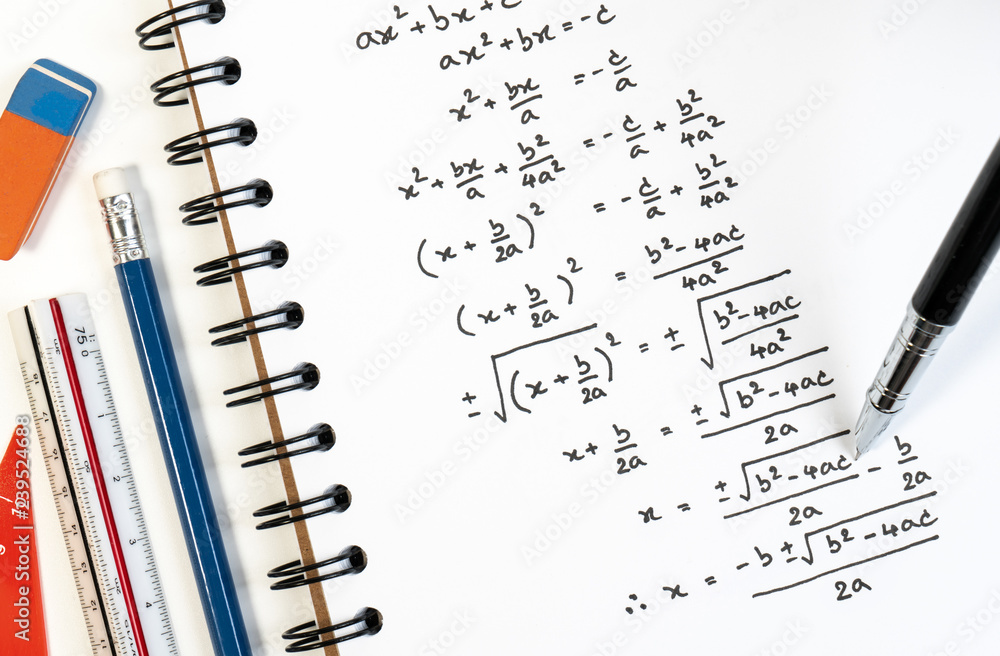 ax² + bx + c
ax² + bx = -c
x² + bx/a = -c/a
x² + bx/a + b²/4a² = -c/a + b²/4a²
(x + b/2a)² = -c/a + b²/4a²
(x + b/2a)² = b² - 4ac/4a²
±√(x + b/2a)² = ±√b² - 4ac/4a²
x + b/2a = ±√b² - 4ac/2a
x = ±√b² - 4ac/2a - b/2a
∴ x = -b ± √b² - 4ac/2a
75
1:
0
1
2
3
4
Adobe Stock | #239524688